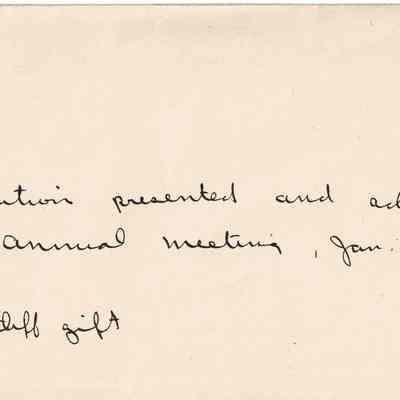 ution presented and ad
annual meeting, Jan.
cliff gift